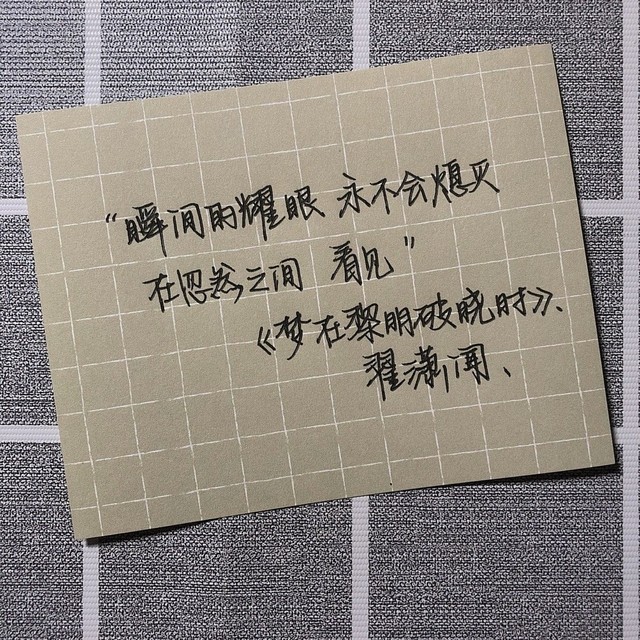 “瞬间的耀眼 永不会熄灭
在忽然之间 看见”
《梦在黎明破晓时》、
翟潇闻、